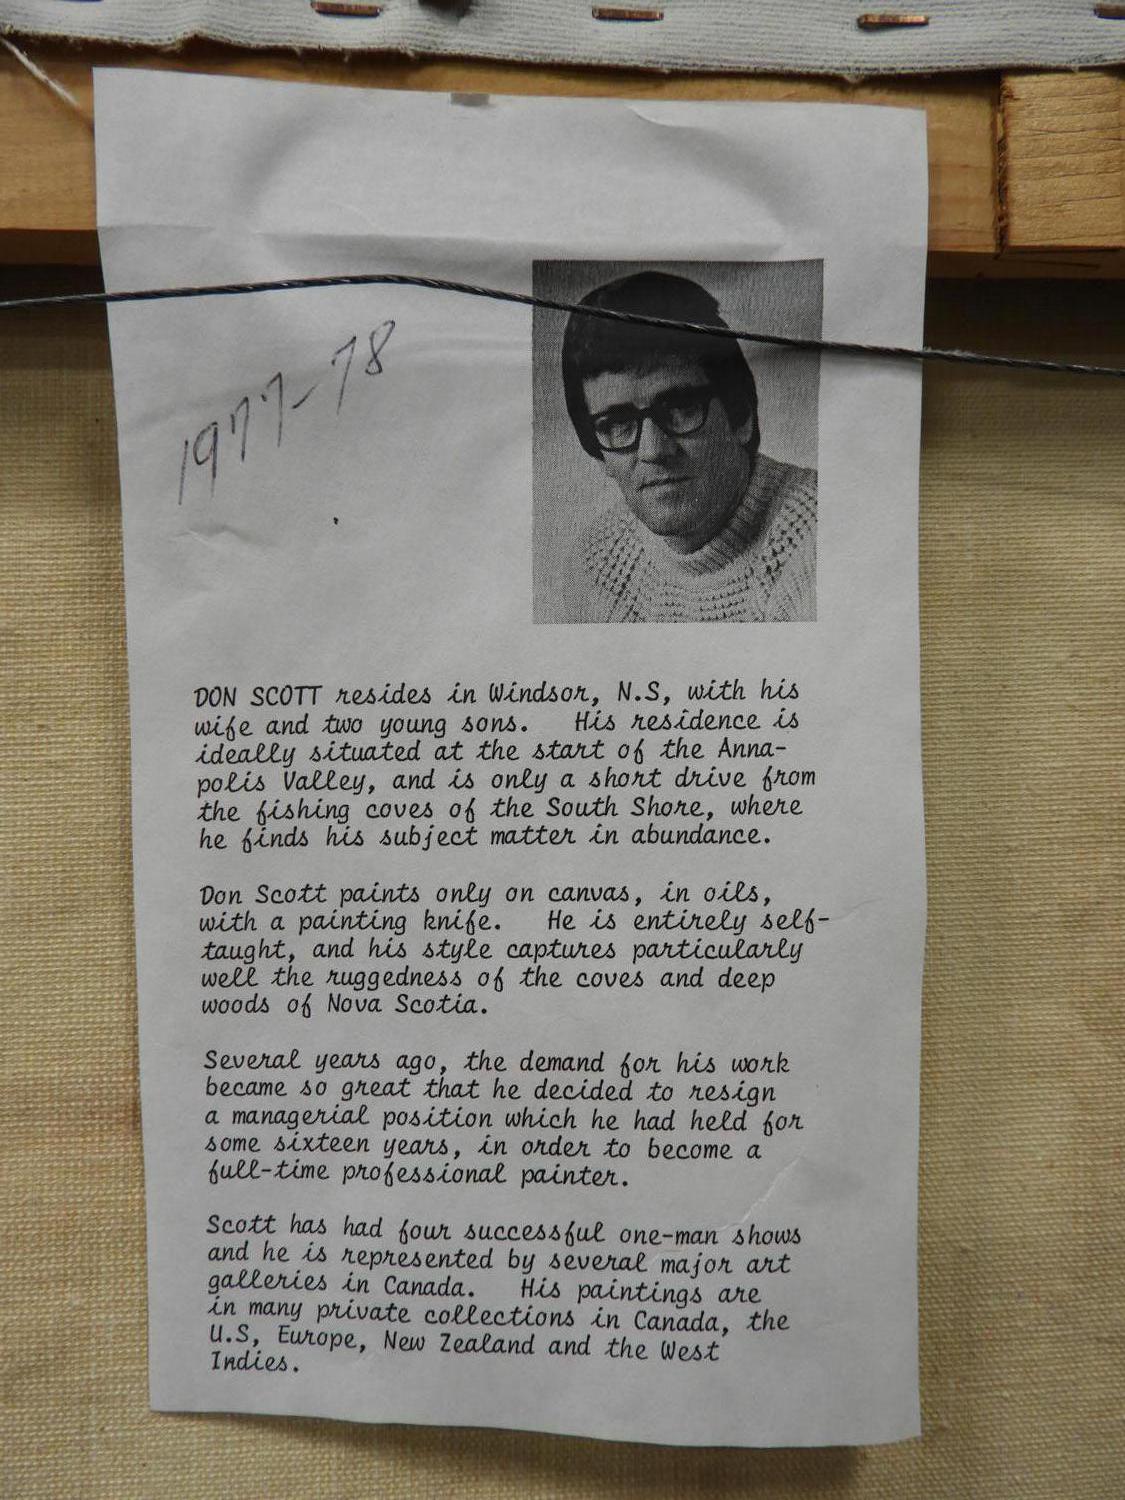 1977-78
DON SCOTT resides in Windsor, N.S, with his
wife and two young sons. His residence is
ideally situated at the start of the Anna-
polis Valley, and is only a short drive from
the fishing coves of the South Shore, where
he finds his subject matter in abundance.
Don Scott paints only on canvas, in oils,
with a painting knife. He is entirely self-
taught, and his style captures particularly
well the ruggedness of the coves and deep
woods of Nova Scotia.
Several years ago, the demand for his work
became so great that he decided to resign
a managerial position which he had held for
some sixteen years, in order to become a
full-time professional painter.
Scott has had four successful one-man shows
and he is represented by several major art
galleries in Canada. His paintings are
in many private collections in Canada, the
U.S, Europe, New Zealand and the West
Indies.